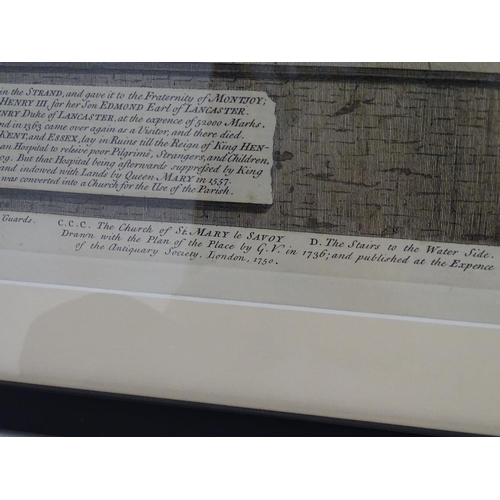 in the STRAND, and gave it to the Fraternity of MONTJOY;
HENRY III, for her Son EDMOND Earl of LANCASTER.
NRY Duke of LANCASTER, at the expence of 52000 Marks.
nd in 1363 came over again as a Visitor, and there died.
KENT, and ESSEX, lay in Ruins till the Reign of King HEN-
an Hospital to releive poor Pilgrims, Strangers, and Children,
og. But that Hospital being afterwards suppressed by King
and indowed with Lands by Queen MARY in 1557.
was converted into a Church for the Use of the Parish.
Guards. C.C.C. The Church of St. MARY le SAVOY D. The Stairs to the Water Side.
Drawn with the Plan of the Place by G.V. in 1736; and published at the Expence
of the Antiquary Society, London, 1750.